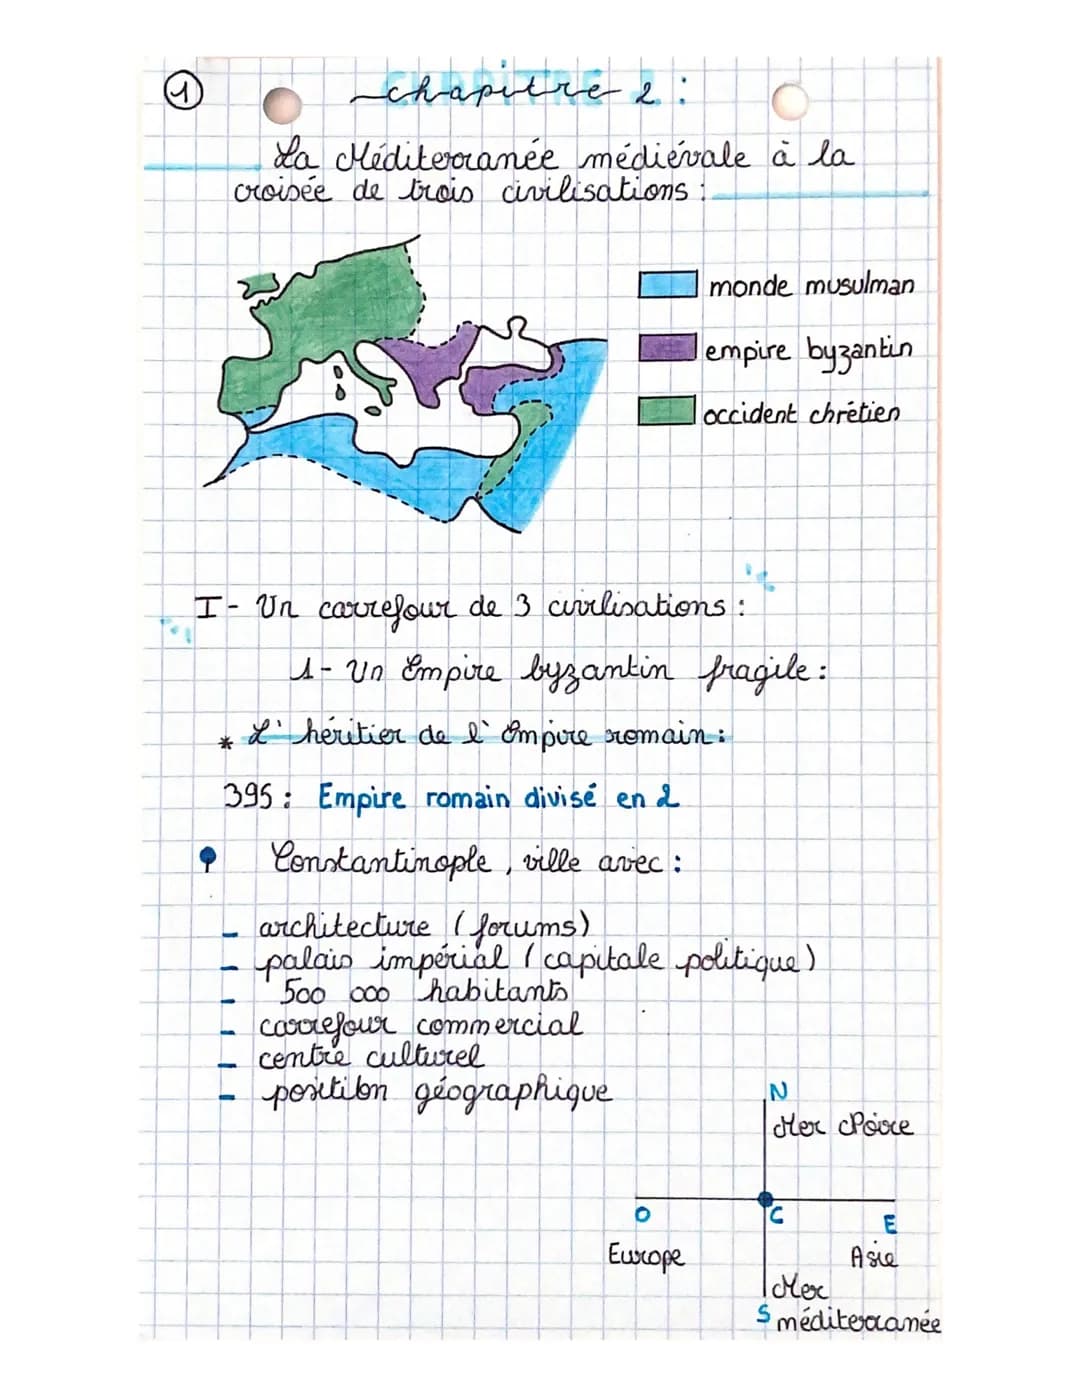 1
chapitre 2 :
La Méditerranée médiévale à la
croisée de trois civilisations :
monde musulman
empire byzantin
occident chrétien
I - Un carrefour de 3 civilisations :
1 - Un Empire byzantin fragile :
* L'héritier de l'Empire romain :
395 : Empire romain divisé en 2
Constantinople, ville avec :
- architecture (forums)
- palais impérial (capitale politique)
- 500 000 habitants
- carrefour commercial
- centre culturel
- position géographique
N
Mer Noire
O
C
E
Europe
Asie
Mer
S méditerranée